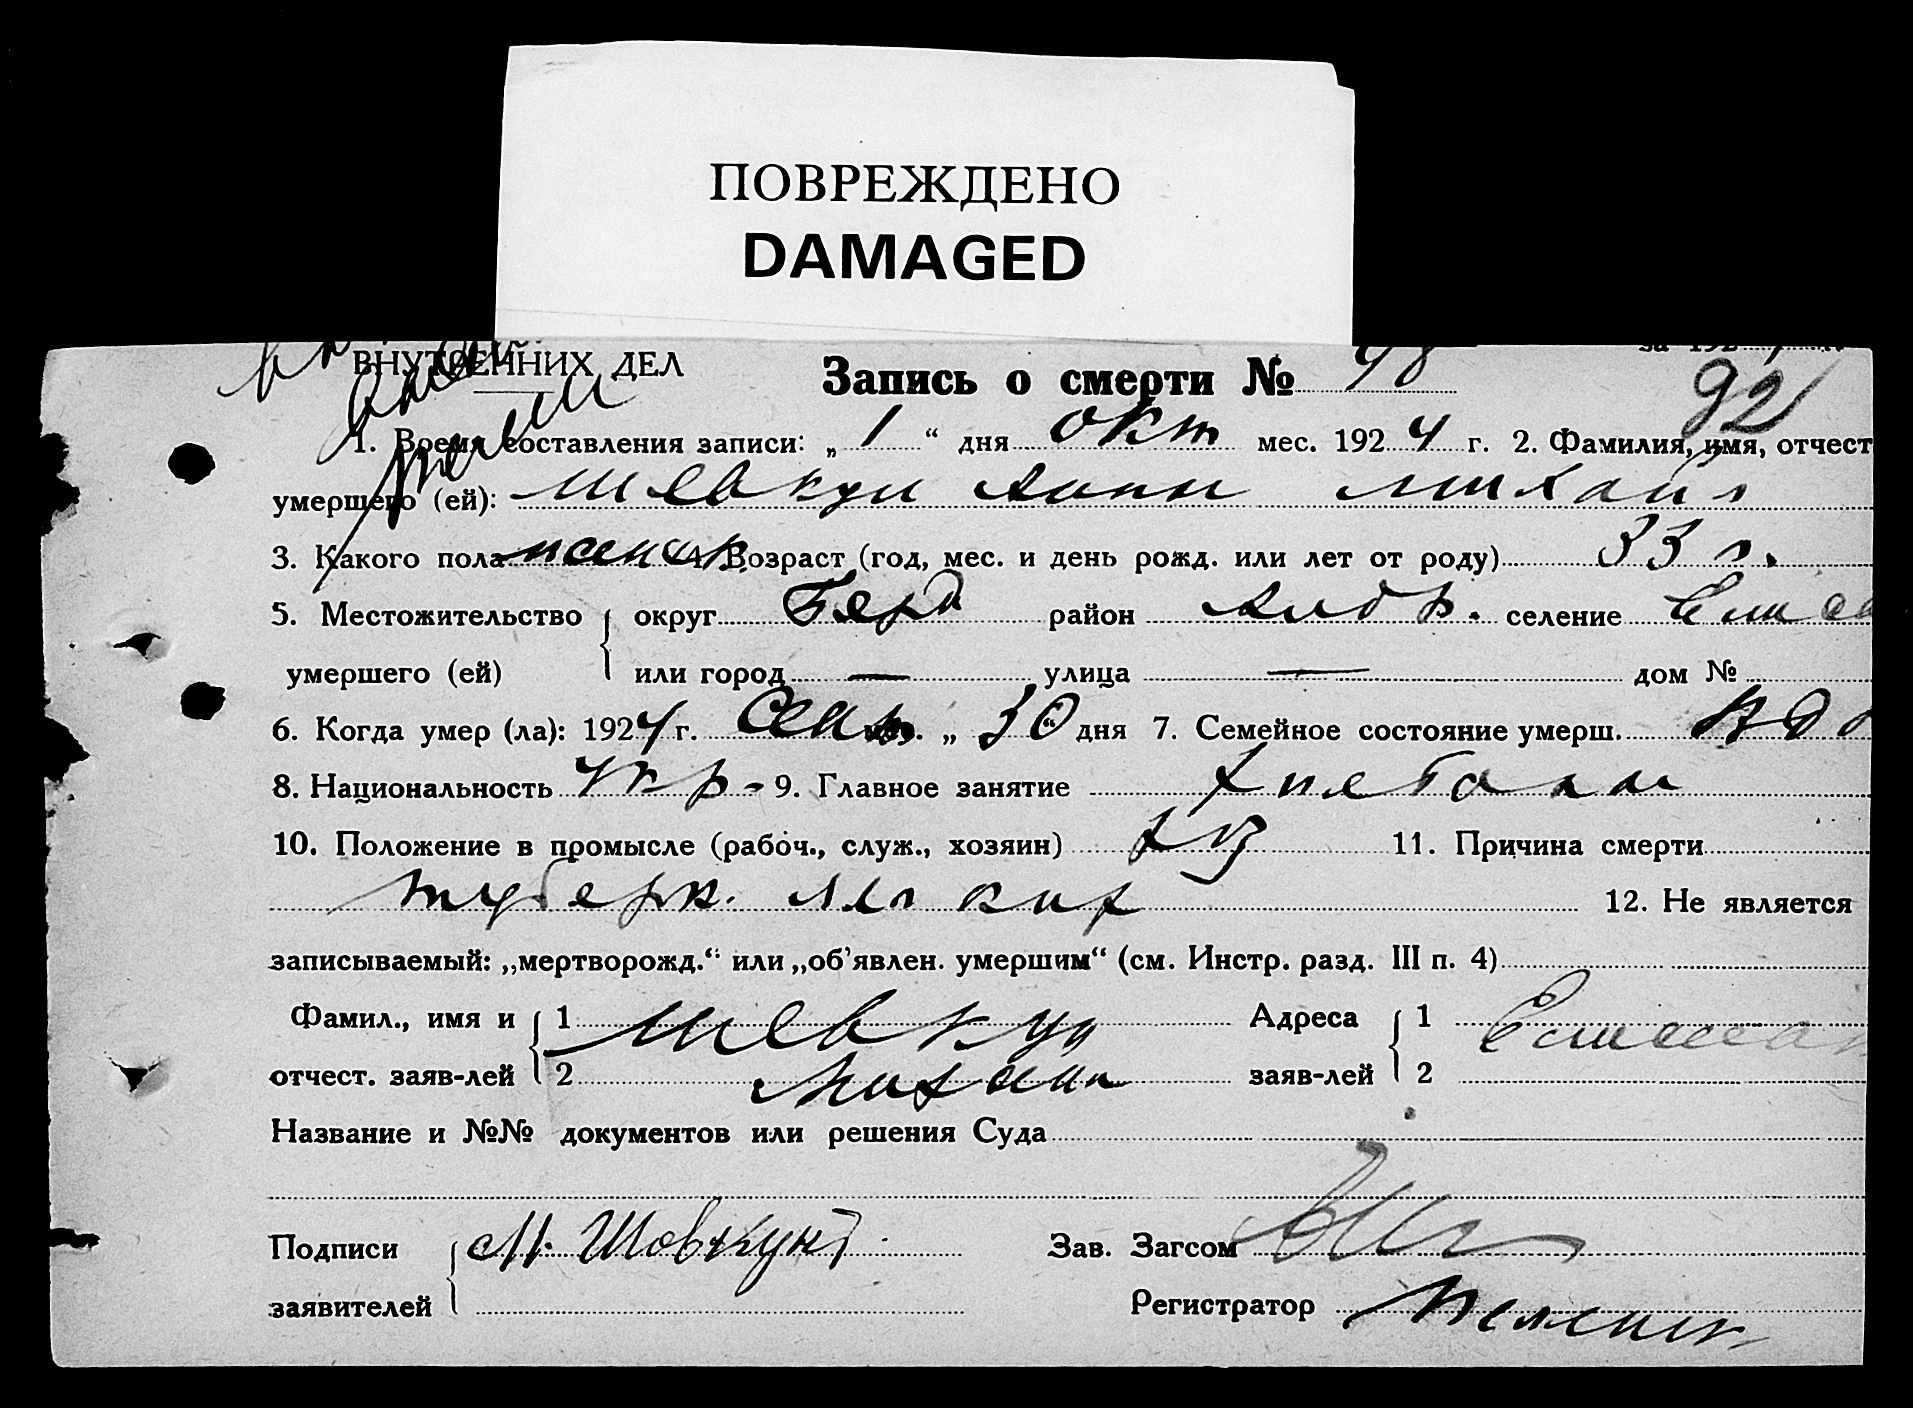 ПОВРЕЖДЕНО
DAMAGED
ВНУТРЕННИХ ДЕЛ
Запись о смерти № 48
92
1. Время составления записи: „ 1 “ дня окт мес. 1924 г. 2. Фамилия, имя, отчест
умершего (ей): Шевкун Анны Михайл
3. Какого пола женск 4. Возраст (год, мес. и день рожд. или лет от роду) 33 г.
5. Местожительство округ Берд район Андр. селение
умершего (ей) или город — улица — дом №
6. Когда умер (ла): 1924 г. Сент мес. „ 30 “ дня 7. Семейное состояние умерш.
8. Национальность Укр- 9. Главное занятие Хлебопаш
10. Положение в промысле (рабоч., служ., хозяин) Хоз 11. Причина смерти
туберк. легких 12. Не является
записываемый: „мертворожд.“ или „об’явлен. умершим“ (см. Инстр. разд. III п. 4)
Фамил., имя и 1 Шевкун Адреса 1
отчест. заяв-лей 2 Михаил заяв-лей 2
Название и №№ документов или решения Суда
Подписи М. Шовкунъ Зав. Загсом
заявителей Регистратор